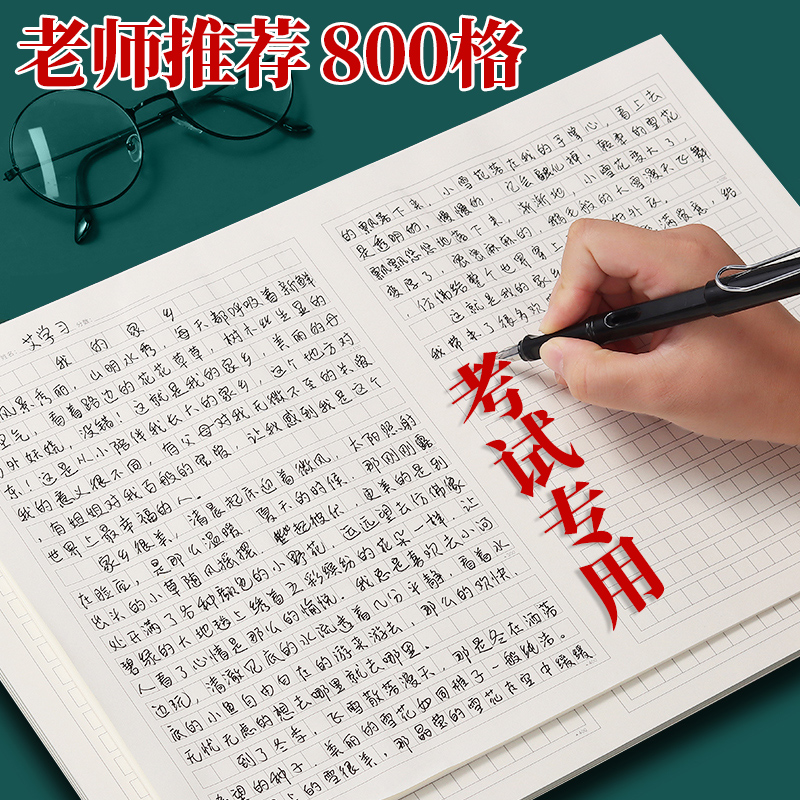 老师推荐 800格
考试专用
艾学习
我的家乡
风景秀丽，山明水秀，每天都呼吸着新鲜
空气，看着路边的花花草草，树木丛生显的
外妖娆，没错！这就是我的家乡，美丽的丹
东！这是从小陪伴我长大的家乡，这个地方对
我的意义很不同，有父母对我无微不至的关爱
，有姐姐对我百般的宠爱，让我感到我是这个
世界上最幸福的人。
家乡很美，清晨起床迎着微风，太阳照射
在脸庞，是那么温暖，夏天的时候，那刚刚露
出头的小草随风摇摆，此起彼伏，更美的是到
处开满了各种颜色的小野花，远远望去仿佛像
碧绿的大地毯上绣着五彩缤纷的花朵一样，让
人看了心情是那么的愉悦。我总是喜欢去小河
边玩，清澈见底的水流透着几分平静，看着水
底的小鱼自由自在的游来游去，那么的欢快，
无忧无虑的想去哪里就去哪里。
到了冬季，飞雪散落漫天，那是冬在洒落
希望的种子，美丽的雪花如同稚子一般纯洁。
的雪很美，那晶莹的雪花在空中缓缓
的飘落下来，小雪花落在我的手掌心，看上去
是透明的，慢慢的，它会融化掉，轻柔的雪花
飘飘悠悠地落下来，渐渐地，小雪花变大了，
变厚了，密密麻麻的，鹅毛般的大雪漫天飞舞
，仿佛给整个世界穿上 的外衣。
这就是我的家乡 满爱意，给
我带来了很多欢